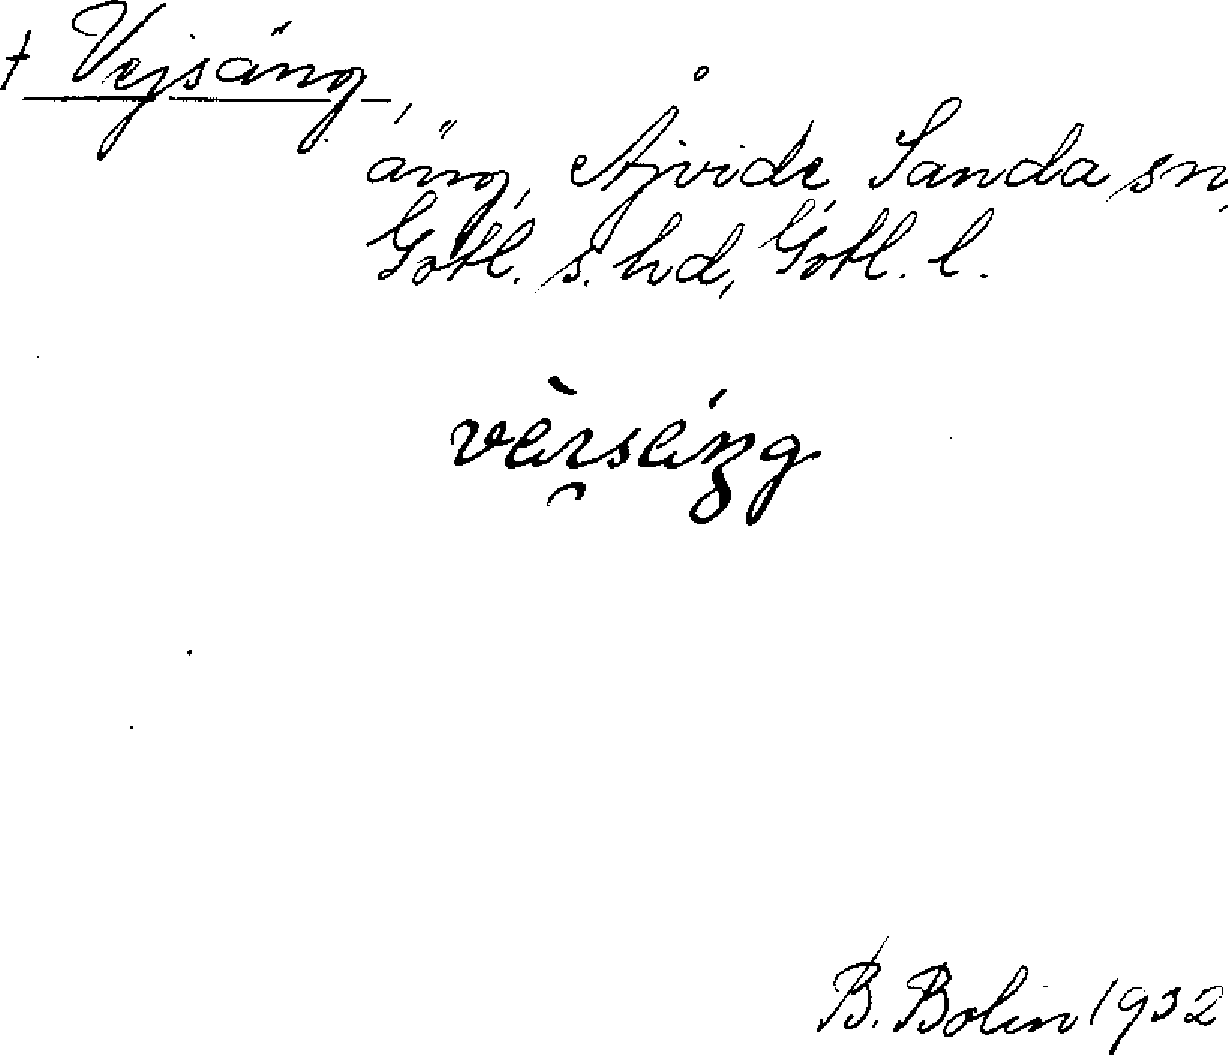 † Vejsäng,
äng, Åjvide Sanda sn,
Gotl. s. hd, Gotl. l.
B. Bolin 1932